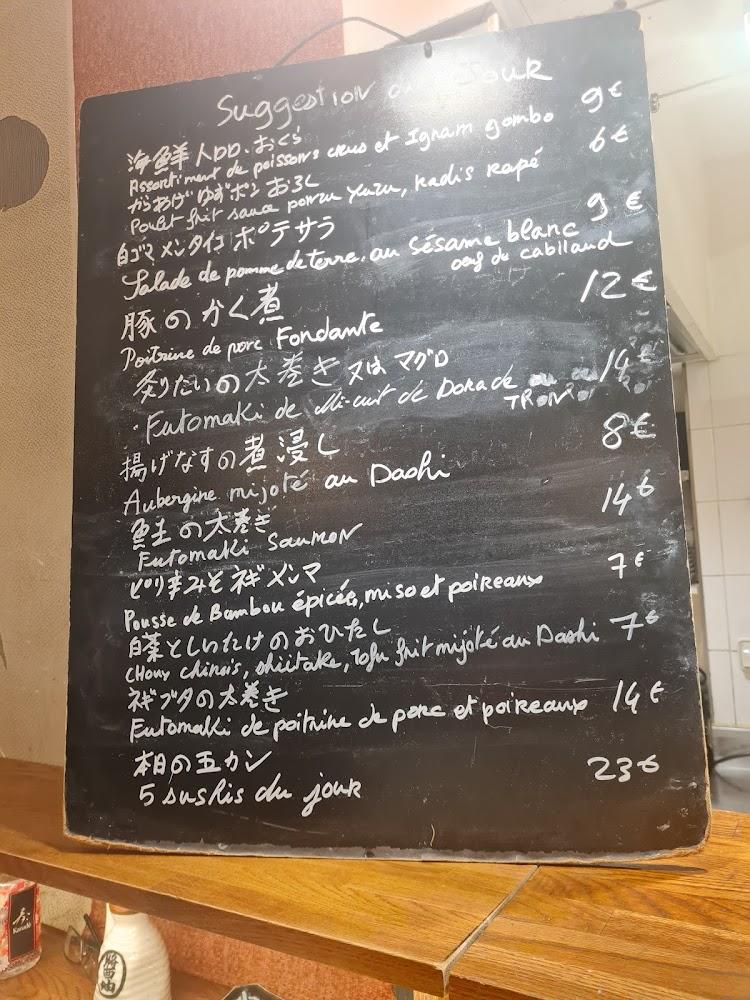 Suggestion du Jour
海鮮人DD・おくら 9€
Assortiment de poissons crus et Ignam gombo
からあげゆずポン おろし 6€
Poulet frit sauce ponzu yuzu, Radis Rapé
白ゴマ メンタイコ ポテサラ 9 €
Salade de pomme de terre, au sésame blanc
oeuf de cabillaud
豚のかく煮 12€
Poitrine de porc Fondante
炙りたいの太巻き 又は マグロ 14€
・Futomaki de Mi-cuit de Dorade ou au
THON
揚げなすの煮浸し 8€
Aubergine mijoté au Dashi
鮭の太巻き 14€
Futomaki Saumon
ピリ辛みそネギメンマ 7€
Pousse de Bambou épicée, miso et poireaux
白菜としいたけのおひたし 7€
CHoux chinois, shiitake, Tofu frit mijoté au Dashi
ネギブタの太巻き 14€
Futomaki de poitrine de porc et poireaux
本日の五カン 23€
5 sushis du jour
Kanadé
醤油